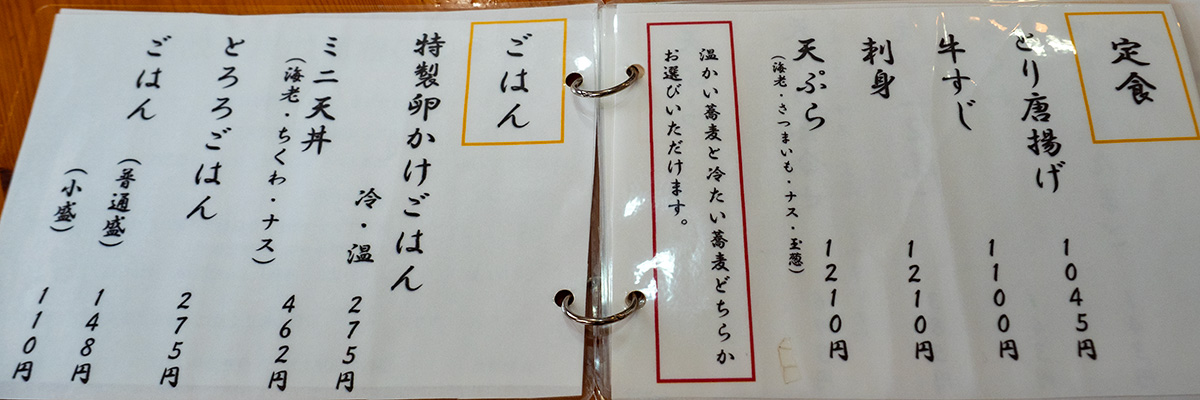 定食
とり唐揚げ 1045円
牛すじ 1100円
刺身 1210円
天ぷら 1210円
(海老・さつまいも・ナス・玉葱)
温かい蕎麦と冷たい蕎麦どちらか
お選びいただけます。
ごはん
特製卵かけごはん
冷・温 275円
ミニ天丼 462円
(海老・ちくわ・ナス)
とろろごはん 275円
ごはん
(普通盛) 148円
(小盛) 110円